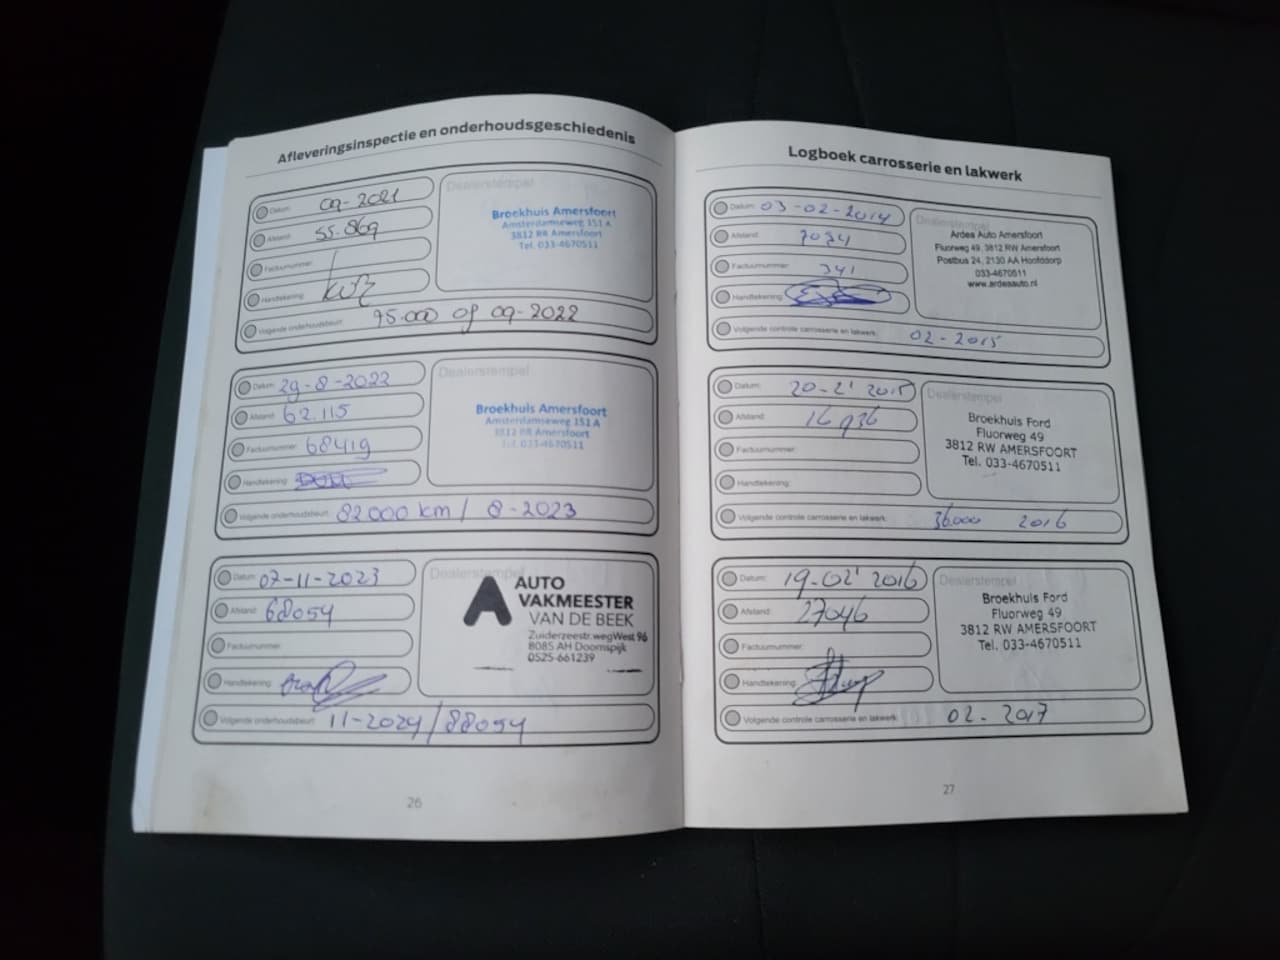 Afleveringsinspectie en onderhoudsgeschiedenis
Datum: 09-2021
Afstand: 55.869
Factuurnummer:
Handtekening:
Volgende onderhoudsbeurt: 75.000 of 09-2022
Dealerstempel
Broekhuis Amersfoort
Amsterdamseweg 151 A
3812 RR Amersfoort
Tel. 033-4670511
Datum: 29-8-2022
Afstand: 62.115
Factuurnummer: 68419
Handtekening:
Volgende onderhoudsbeurt: 82000 km / 8-2023
Dealerstempel
Broekhuis Amersfoort
Amsterdamseweg 151 A
3812 RR Amersfoort
Tel. 033-4670511
Datum: 07-11-2023
Afstand: 68054
Factuurnummer:
Handtekening:
Volgende onderhoudsbeurt: 11-2024/88054
Dealerstempel
AUTO
VAKMEESTER
VAN DE BEEK
Zuiderzeestr.wegWest 96
8085 AH Doornspijk
0525-661239
26
Logboek carrosserie en lakwerk
Datum: 03-02-2014
Afstand: 7034
Factuurnummer: 341
Handtekening:
Volgende controle carrosserie en lakwerk: 02-2015
Dealerstempel
Ardea Auto Amersfoort
Fluorweg 49, 3812 RW Amersfoort
Postbus 24, 2130 AA Hoofddorp
033-4670511
www.ardeaauto.nl
Datum: 20-2' 2015
Afstand: 16936
Factuurnummer:
Handtekening:
Volgende controle carrosserie en lakwerk: 36.000 2016
Dealerstempel
Broekhuis Ford
Fluorweg 49
3812 RW AMERSFOORT
Tel. 033-4670511
Datum: 19-02' 2016
Afstand: 27046
Factuurnummer:
Handtekening:
Volgende controle carrosserie en lakwerk: 02-2017
Dealerstempel
Broekhuis Ford
Fluorweg 49
3812 RW AMERSFOORT
Tel. 033-4670511
27